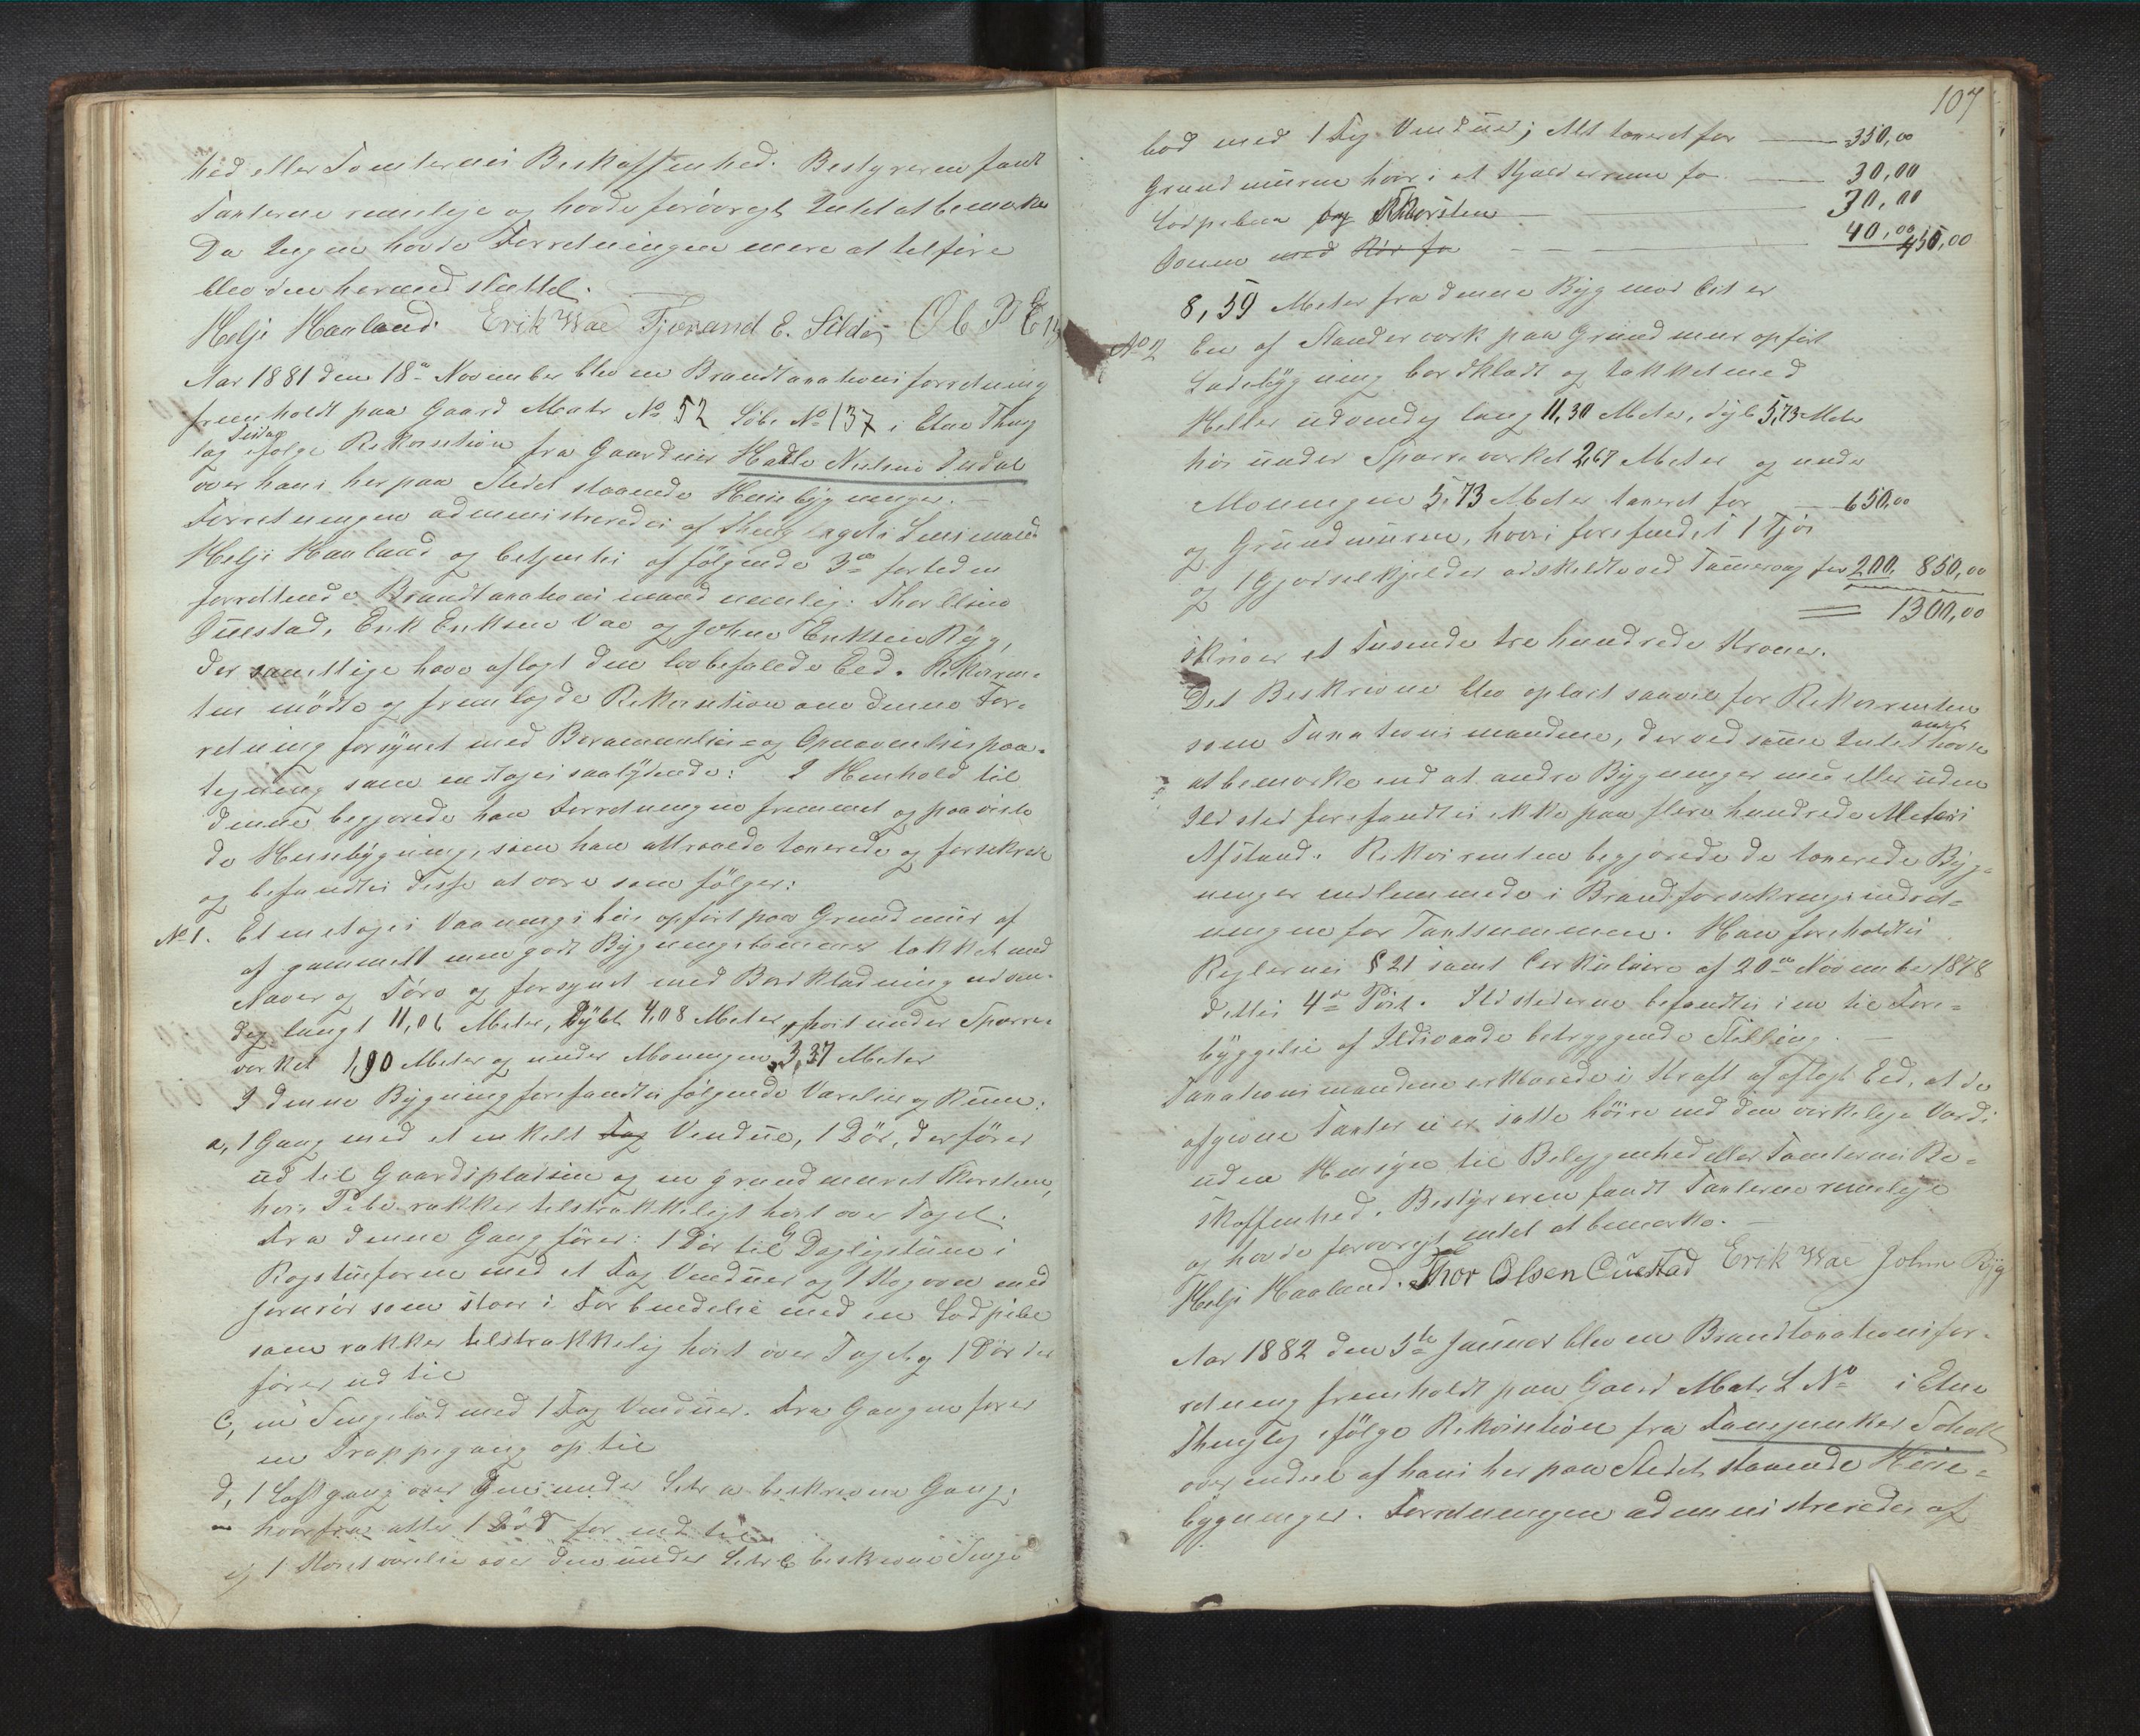 hed eller Tomternes Beskaffenhed. Bestyreren fandt
Taxterne rimelige og havde forövrigt Intet at bemærke
Da Ingen havde Forretningen mere at tilföie
blev den hermed sluttet.
Helje Haaland. Erik Wae Tjerand E. Silde
Aar 1881 den 18de November blev en Brandtaxationsforretning
fremholdt paa Gaard Matr No 52 Löbe No 137 i Etne Thing
lag ifölge Rekvisition fra Gaardmand Halle Nielsens
over hans her paa Stedet staaende Huusbygninger. —
Forretningen administreredes af Thinglagets Lensmand
Helje Haaland og betjentes af fölgende 3de fortiden
forrettende Brandtaxationsmænd nemlig: Thor Olsen
Erik Eriksen Vae og Johne Eriksen Ryg,
der samtlige have aflagt den lovbefalede Eed. Rekviren-
ten mödte og fremlagde Rekvisition om denne For-
retning forsynet med Berammelses- og Opnævnelsespaa-
tegning som indtages saalydende: I Henhold til
denne begjærede han Forretningen fremmet og paaviste
de Husebygninger, som han attraaede taxerede og forsikrede
og befandtes disse at være som fölger:
No 1. Et en etages Vaaningshus opfört paa Grundmur af
af gammelt men godt Bygningstömmer takket med
Næver og Törv og forsynet med Bordklædning udven-
dig langt 11,06 Meter, Dybt 4,08 Meter, höit under Sparre-
værket 1,90 Meter og under Mönningen 3,37 Meter
I denne Bygning forefandtes fölgende Værelser og Rum:
a, 1 Gang med et enkelt Fag Vendue, 1 Dör, der förer
ud til Gaardspladsen og en grundmuret Skorsten,
hvis Pibe rækker tilstrækkeligt höit over Taget.
Fra denne Gang förer: 1 Dör til Dagligstuen i
Rogstueform med et Fag Venduer og 1 Kogovn med
Jernrör som staar i Forbindelse med en Lodpibe
som rækker tilstrækkelig höit over Taget og 1 Dör der
förer ud til
C, en Sengebod med 1 Fag Venduer. Fra Gangen förer
en Trappegang op til
d, 1 Loftgang over den under Litr a beskrevne Gang.
hvorfra atter 1 Dör för ind til
e, 1 Værelse over den under Litr C beskrevne Senge
107
bod med 1 Fag Venduer; Alt taxeret for — 350,00
Grundmuren hvor i et Kjælderrum for — 30,00
Lodpiben og Skorsten — 30,00
Ovnen med Rör for — 40,00 450,00
8,59 Meter fra denne Bygning mod er
No 2 En af Standerværk paa Grundmur opfört
Ladebygning bordklædt og takket med
Heller udvendig lang 11,30 Meter, dyb 5,73 Meter
höi under Sparreværket 2,67 Meter og under
Mönningen 5,73 Meter taxeret for — 650,00
og Grundmuren, hvori forefindes 1 Fjös
og 1 Gjödselkjelder adskildte ved Tömmervæg for 200. 850,00
= 1300,00
skriver et Tusende tre hundrede Kroner.
Det Beskrevne blev oplæst saavel for Rekvirenten
som Taxationsmændene, der ved samme Intet andet havde
at bemærke end at andre Bygninger med eller uden
Ildsted forefandtes ikke paa flere hundrede Meters
Afstand. Rekvirenten begjærede de taxerede Byg-
ninger indlemmede i Brandforsikringsindret-
ningen for Taxtsummen. Han foreholdtes
Reglernes § 21 samt Cirkulaire af 20de November 1848
dettes 4de Post. Ildstederne befandtes i en til Fore-
byggelse af Ildsvaade betryggende Stilling. —
Taxationsmændene erklærede i Kraft af aflagt Eed, at de
afgivne Taxter ei er satte höiere end den virkelige Værdi
uden Hensyn til Beliggenhed eller Tomternes Be-
skaffenhed. Bestyreren fandt Taxterne rimelige
og havde forövrigt intet at bemærke. —
Helje Haaland. Thor Olsen Erik Wae Johne Ryg
Aar 1882 den 5te Januar blev en Brandtaxationsfor-
retning fremholdt paa Gaard Matr L No i Etne
Thinglag ifölge Rekvisition fra
over endeel af hans her paa Stedet staaende Huse-
bygninger. Forretningen administreredes af